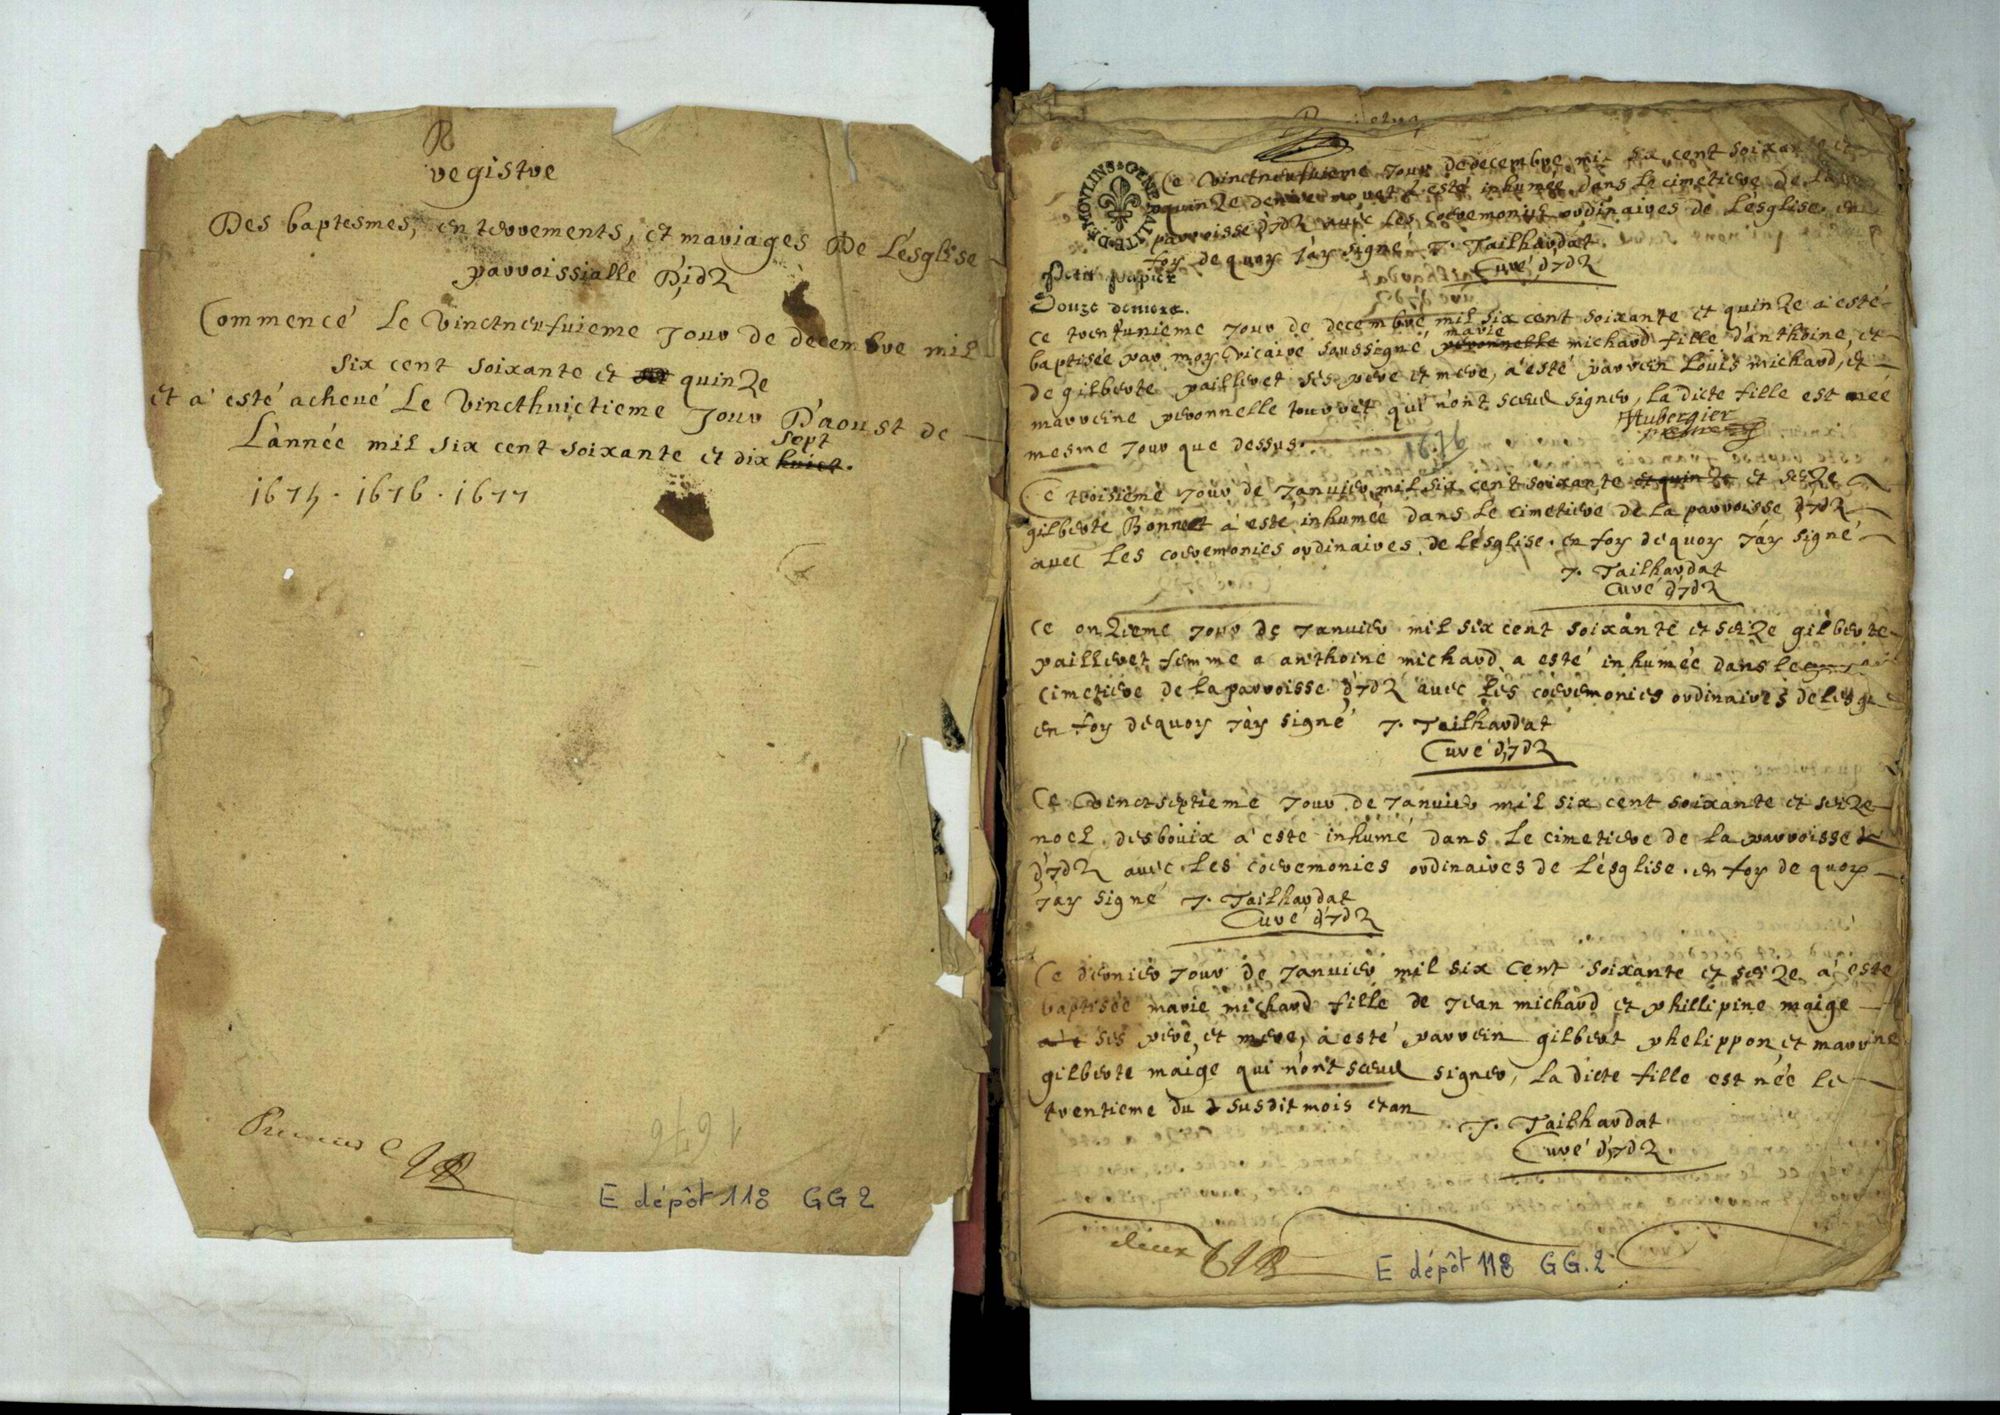 R
registre
Des baptesmes, enterrements, et mariages De Lésglise
parroissialle D'idz
Commencé Le Vinctneufuieme Jour de decembre mil
six cent soixante et quinze
et a esté acheué Le Vincthuictieme Jour D'aoust de
L'année mil six cent soixante et dix sept huict.
1675 . 1676 . 1677
1676
E dépôt 118 GG2
GENERALITE DE MOVLINS
Ce Vinctneufuieme Jour de decembre mil six cent soixante et
quinze denier mouret a esté inhumée dans Le cimetiere de La
parroisse d'ydz auec Les cœremonies ordinaires de Lésglise. en
foy de quoy J'ay signé J. Tailhardat
Curé d'ydz
Petit Papier
Douze deniers.
Ce trentunieme Jour de decembre mil six cent soixante et quinze a esté
baptisée par moy Vicaire soussigné marie peronnelle michard fille d'anthoine, et
de gilberte paillieret ses pere et mere, a esté parrein Louis michard, et
marreine peronnelle tourret qui n'ont sceu signer, La dicte fille est née
mesme Jour que dessus.
Aubergier
Ce troisieme Jour de Januier mil six cent soixante et quinze et seize
gilberte Bonnet a esté inhumée dans Le cimetiere de La parroisse d'ydz
auec Les cœremonies ordinaires de Lésglise. en foy de quoy J'ay signé
J. Tailhardat
Curé d'ydz
Ce onzieme Jour de Januier mil six cent soixante et seize gilberte
paillieret femme a anthoine michard a esté inhumée dans Le
cimetiere de La parroisse d'ydz auec Les cœremonies ordinaires de Lesgl
en foy de quoy J'ay signé J. Tailhardat
Curé d'ydz
Ce Vinctseptieme Jour de Januier mil six cent soixante et seize
noel desbouix a esté inhumé dans Le cimetiere de La parroisse
d'ydz auec Les cœremonies ordinaires de Lésglise. en foy de quoy
J'ay signé J. Tailhardat
Curé d'ydz
Ce dernier Jour de Januier mil six cent soixante et seize a esté
baptisée marie michard fille de Jean michard et phillipine maige
ses pere, et mere, a esté parrein gilbert phelippon, et marrine
gilberte maige qui n'ont sceu signer, La dicte fille est née le
trentieme du susdit mois et an
J. Tailhardat
Curé d'ydz
deux
E dépôt 118 GG.2